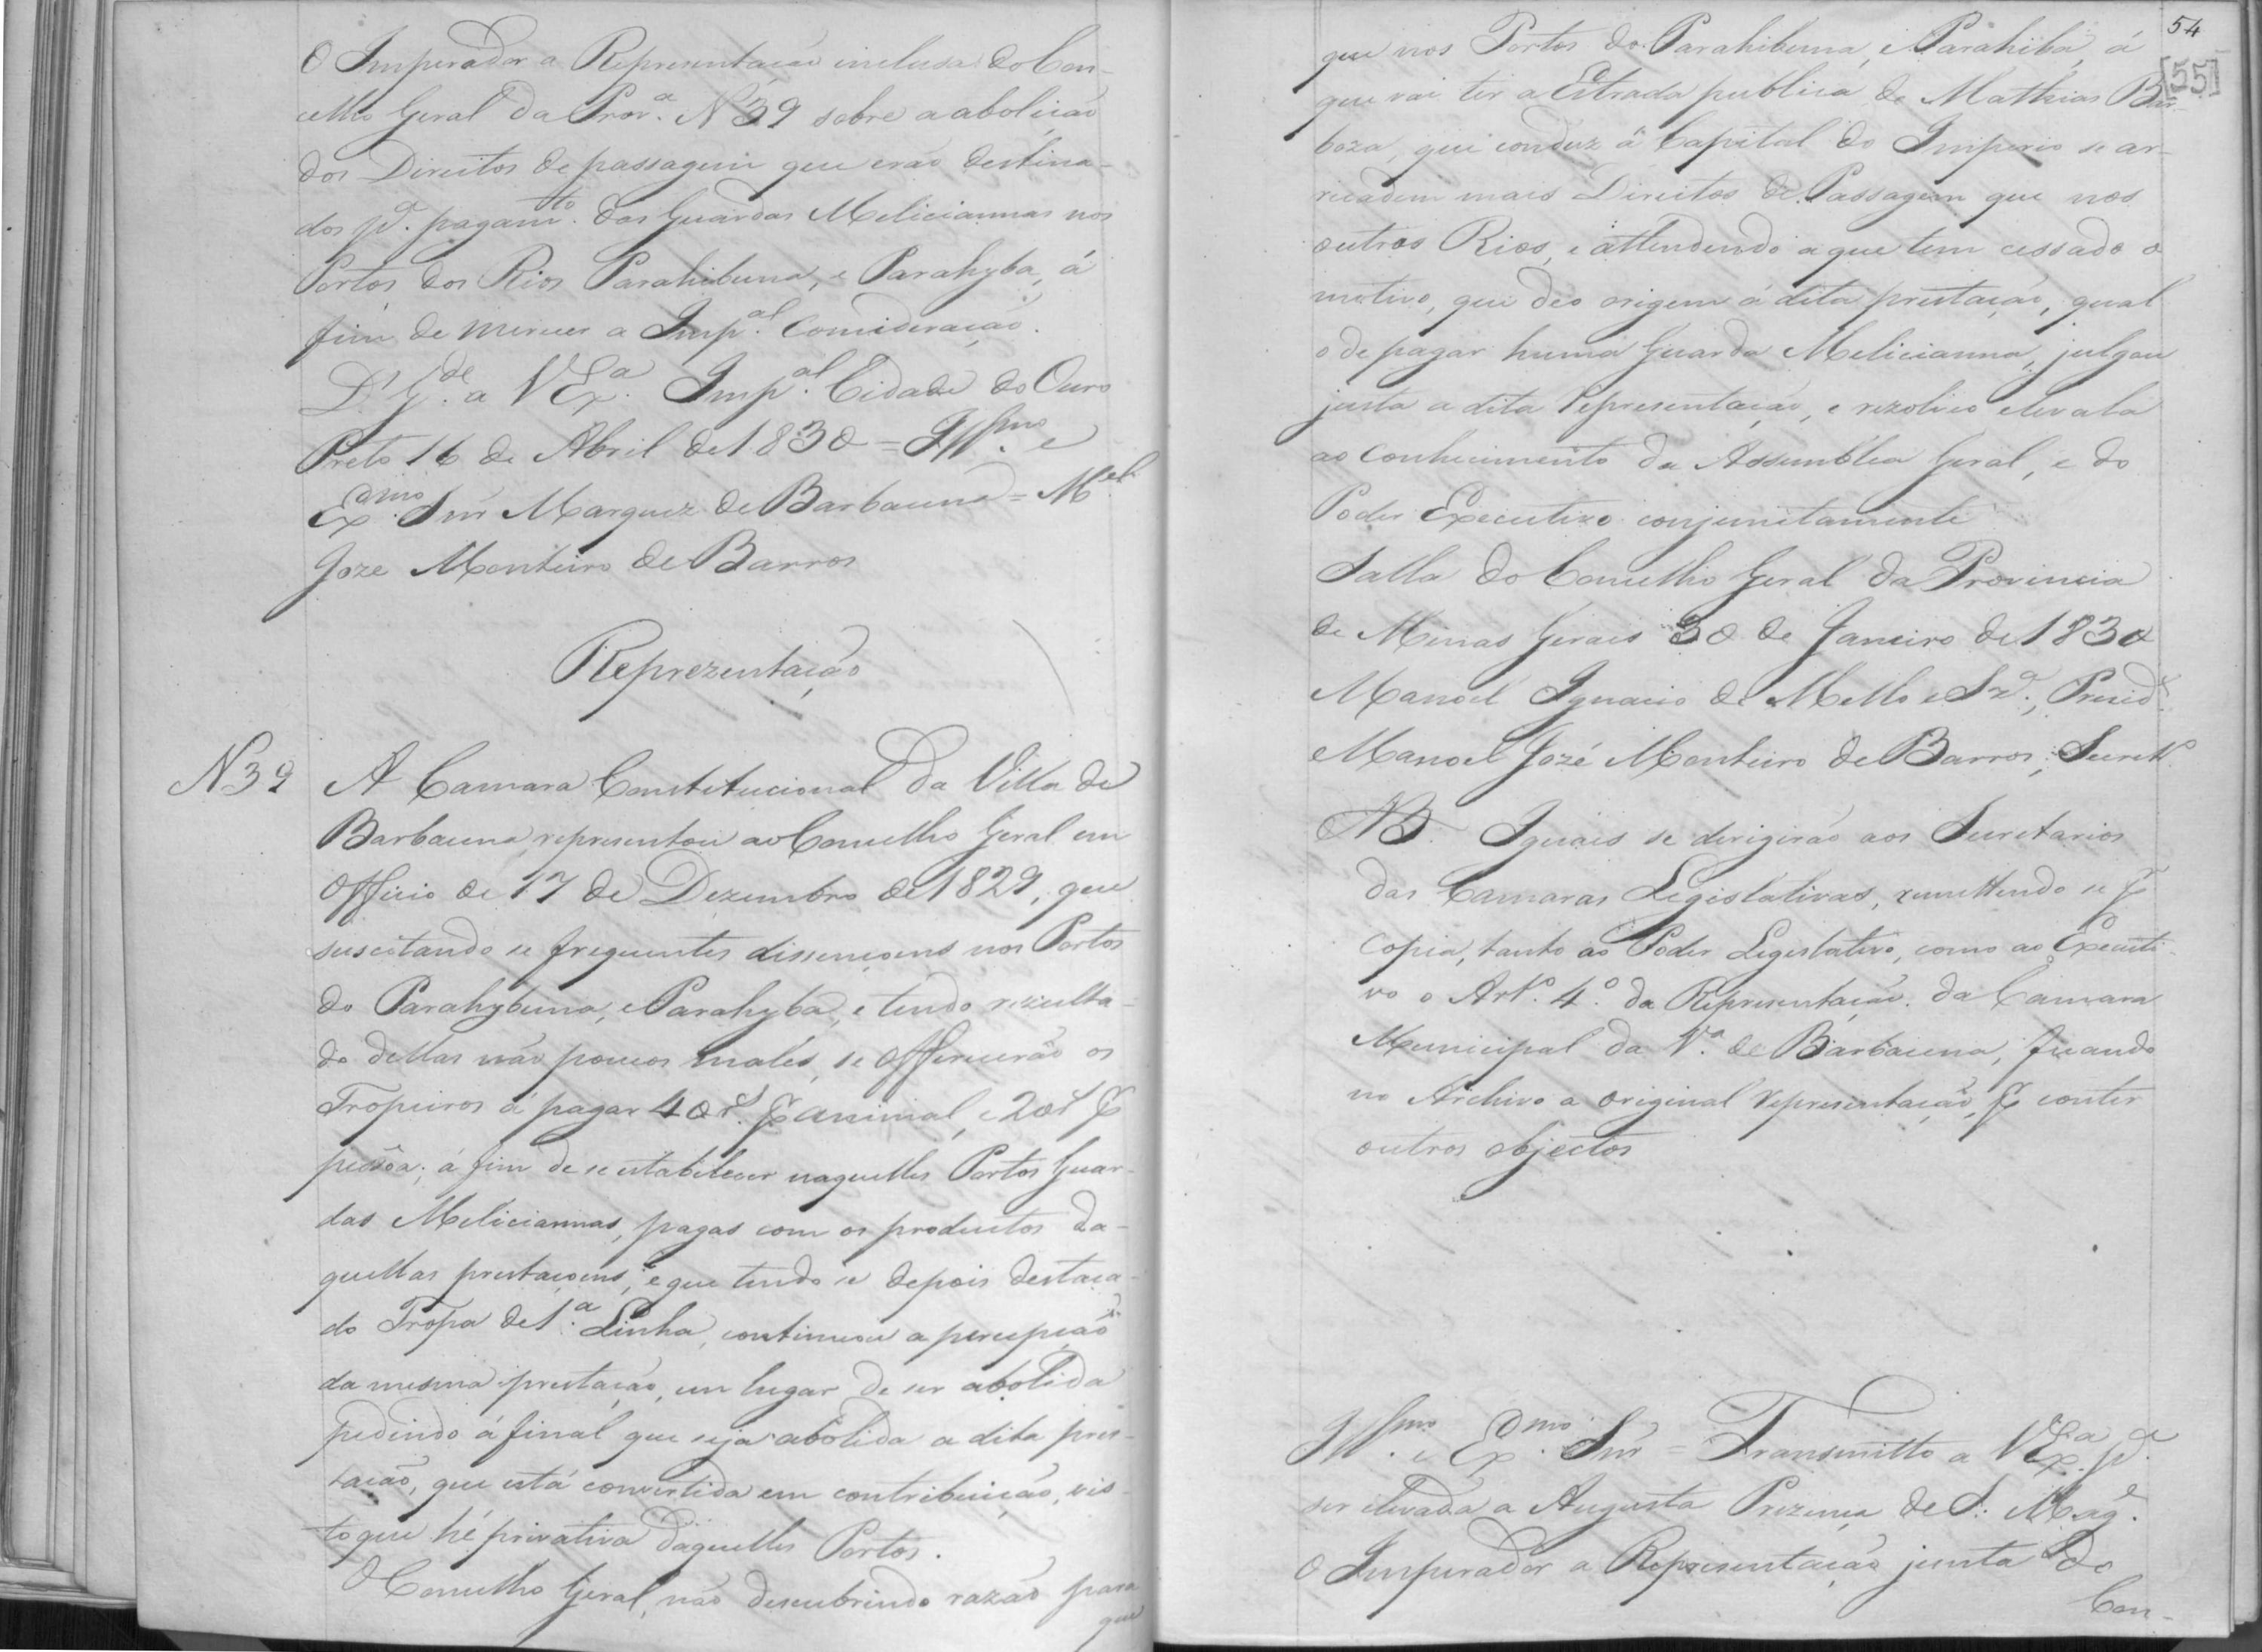 O Imperador a Representação inclusa do Con-
celho Geral da Prov.ª N 39 sobre a abolição
dos Direitos de passagem que erão destina-
dos p.ª pagam.to das Guardas Melicianas nos
Portos dos Rios Parahibuna, e Parahyba, á
fim de merecer a Imp.al Consideração.
D.s G.de a V Ex.ª Imp.al Cidade do Ouro
Preto 16 de Abril de 1830 = Ill.mo e
Ex.mo Snr Marquez de Barbacena = M.el
Joze Monteiro de Barros
Reprezentação
N 39 A Camara Constitucional da Villa de
Barbacena representou ao Concelho Geral em
Officio de 17 de Dezembro de 1829, que
suscitando se frequentes dissençoens nos Portos
do Parahybuna, e Parahyba, e tendo rezulta-
do dellas não poucos males, se offerecerão os
Tropeiros a pagar 40 r.s p animal, e 20 r.s p
pessôa, á fim de se estabelecer naquelles Portos Guar-
das Melicianas, pagas com os productos da-
quellas prestaçoens, e que tendo se depois destaca-
do Tropa de 1.ª Linha, continuou a percepção
da mesma prestação, em lugar de ser abolida
pedindo á final que seja abolida a dita pres-
tação, que está convertida em contribuição, vis-
to que hé privativa daquelles Portos.
O Concelho Geral, não descubrindo razão para
que
54
[55]
que nos Portos do Parahibuna, e Parahiba, á
que vai ter a Estrada publica de Mathias Bar-
boza, que conduz á Capital do Imperio se ar-
recadem mais Direitos de Passagem que nos
outros Rios, e attendendo a que tem cessado o
motivo, que deo origem á dita prestação, qual
o de pagar huma Guarda Meliciana, julgou
justa a dita Representação, e rezolveo elevala
ao conhecimento da Assemblea Geral, e do
Poder Executivo conjunctamente
Salla do Concelho Geral da Provincia
de Minas Gerais 30 de Janeiro de 1830
Manoel Ignacio de Mello e Sz.ª, Presid.e
Manoel José Monteiro de Barros, Secret.º
NB. Iguais se dirigirão aos Secretarios
das Camaras Legislativas, remettendo se p
copia, tanto ao Poder Legislativo, como ao Executi-
vo o Art.º 4.º da Representação da Camara
Municipal da V.ª de Barbacena, ficando
no Archivo a original representação, p conter
outros objectos
Ill.mo e Ex.mo Snr = Transmitto a V Ex.ª p.ª
ser elevada a Augusta Prezença de S. Mag.e
O Imperador a Representação junta do
Con-